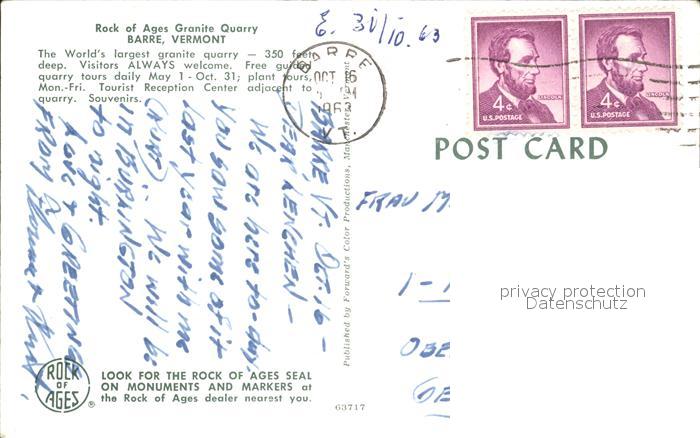 Rock of Ages Granite Quarry
BARRE, VERMONT
The World's largest granite quarry — 350 feet
deep. Visitors ALWAYS welcome. Free guided
quarry tours daily May 1 - Oct. 31; plant tours,
Mon.-Fri. Tourist Reception Center adjacent to
quarry. Souvenirs.
E. 31/10. 63
BARRE
OCT 16
1963
VT.
4¢
LINCOLN
U.S. POSTAGE
4¢
LINCOLN
U.S. POSTAGE
POST CARD
BARRE VT. OCT. 16 —
DEAR LENCHEN —
We are here to-day.
You saw some of it
last year with me
We will be
IN BURLINGTON
to night.
Love & GREETINGS
FROM
Published by Forward's Color Productions, Manchester, Vermont
FRAU M
1-1
OBE
GE
privacy protection
Datenschutz
ROCK
OF
AGES
®
LOOK FOR THE ROCK OF AGES SEAL
ON MONUMENTS AND MARKERS at
the Rock of Ages dealer nearest you.
63717